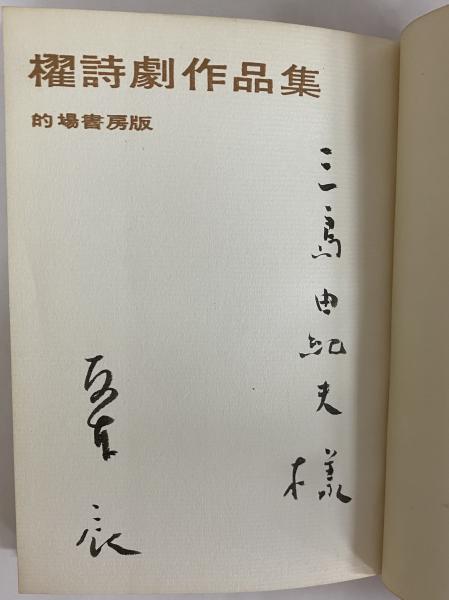 櫂詩劇作品集
的場書房版
三島由紀夫様